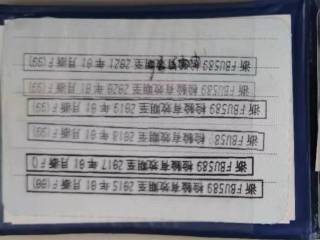 浙FBU589 检验有效期至 2015 年 01 月浙F
浙FBU589 检验有效期至 2017 年 01 月浙F
浙FBU58 检验有效期至 2018 年 01 月浙F(99)
浙FBU589 检验有效期至 2019 年 01 月浙F(99)
浙FBU589 检验有效期至 2020 年 01 月浙F(99)
浙FBU589 检验有效期至 2021 年 01 月浙F(99)